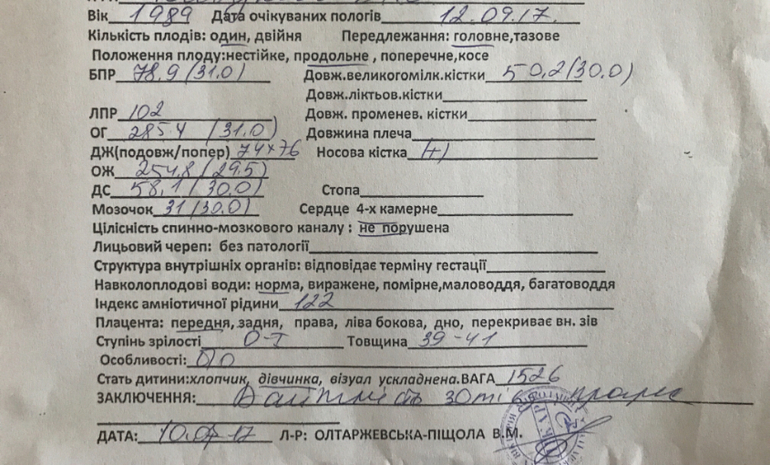 Вік 1989 Дата очікуваних пологів 12.09.17.
Кількість плодів: один, двійня Передлежання: головне,тазове
Положення плоду:нестійке, продольне , поперечне,косе
БПР 78,9 (31.0) Довж.великогомілк.кістки 50,2 (30.0)
Довж.ліктьов.кістки
ЛПР 102 Довж. променев. кістки
ОГ 285.4 (31.0) Довжина плеча
ДЖ(подовж/попер) 74×76 Носова кістка (+)
ОЖ 254,8 (29.5)
ДС 58,1 (30.0) Стопа
Мозочок 31 (30.0) Сердце 4-х камерне
Цілісність спинно-мозкового каналу : не порушена
Лицьовий череп: без патології
Структура внутрішніх органів: відповідає терміну гестації
Навколоплодові води: норма, виражене, помірне,маловоддя, багатоводдя
Індекс амніотичної рідини 122
Плацента: передня, задня, права, ліва бокова, дно, перекриває вн. зів
Ступінь зрілості 0-I Товщина 39-41
Особливості:
Стать дитини:хлопчик, дівчинка, візуал ускладнена.ВАГА 1526
ЗАКЛЮЧЕННЯ: Вагітність 30т
ДАТА: 10.07.17 Л-Р: ОЛТАРЖЕВСЬКА-ПІЩОЛА В.М.